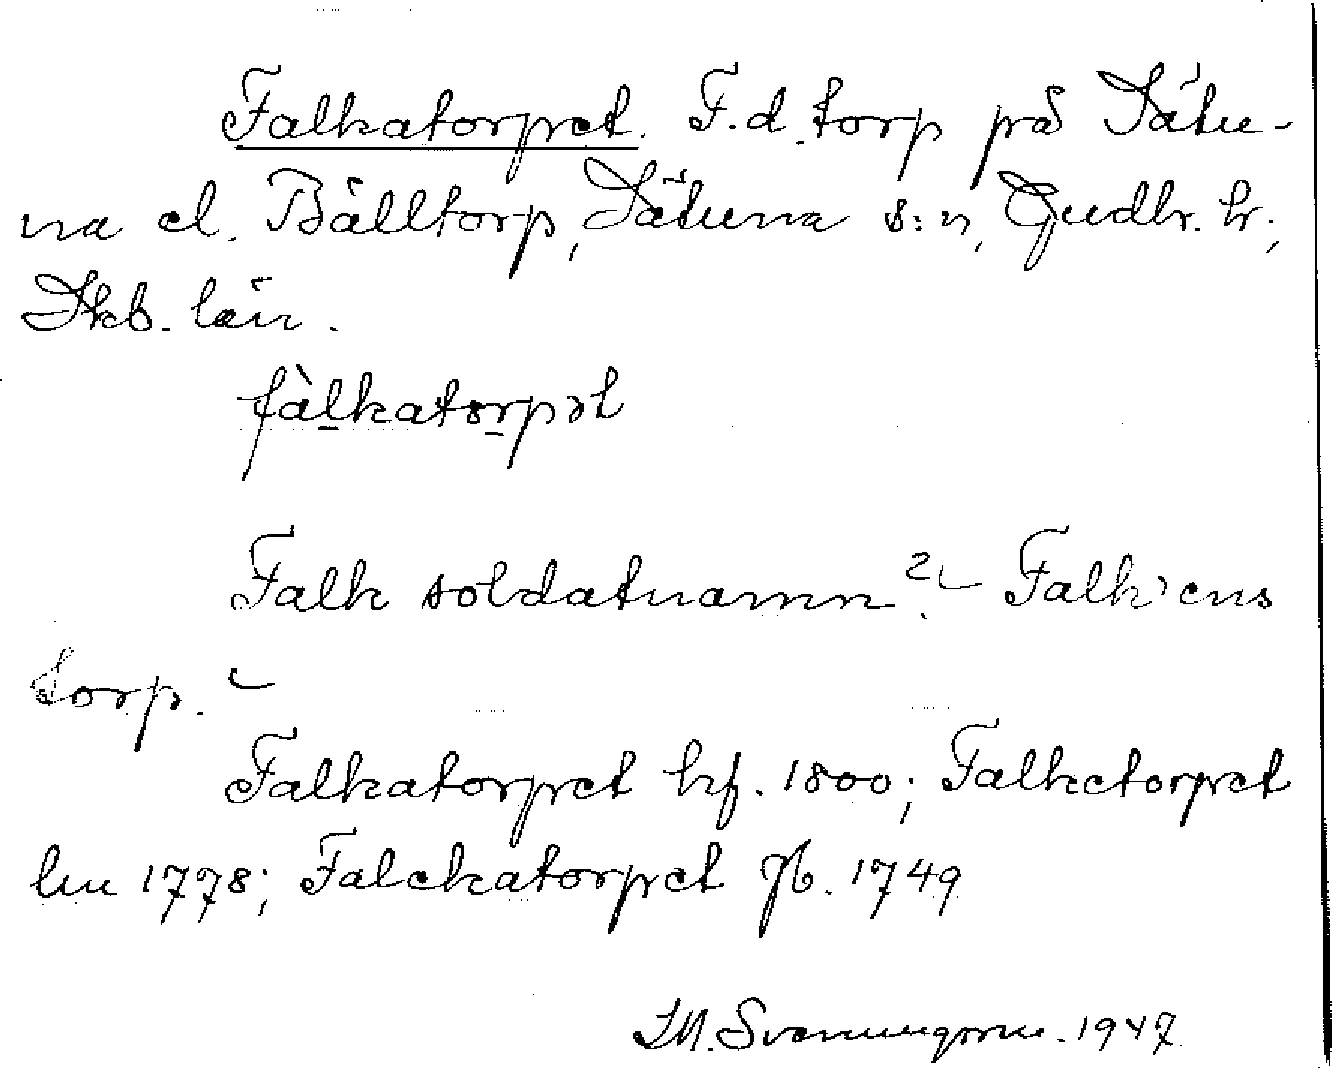 Falkatorpet. F.d. torp på Sätu-
na el. Bälltorp, Sätuna s:n, Gudh. h.,
Skb. län.
fàlkatorpət
Falk soldatnamn? – Falk'ens
torp. –
Falkatorpet hf. 1800; Falketorpet
lm 1778; Falckatorpet jb. 1749
I.M. Svenungsson. 1947